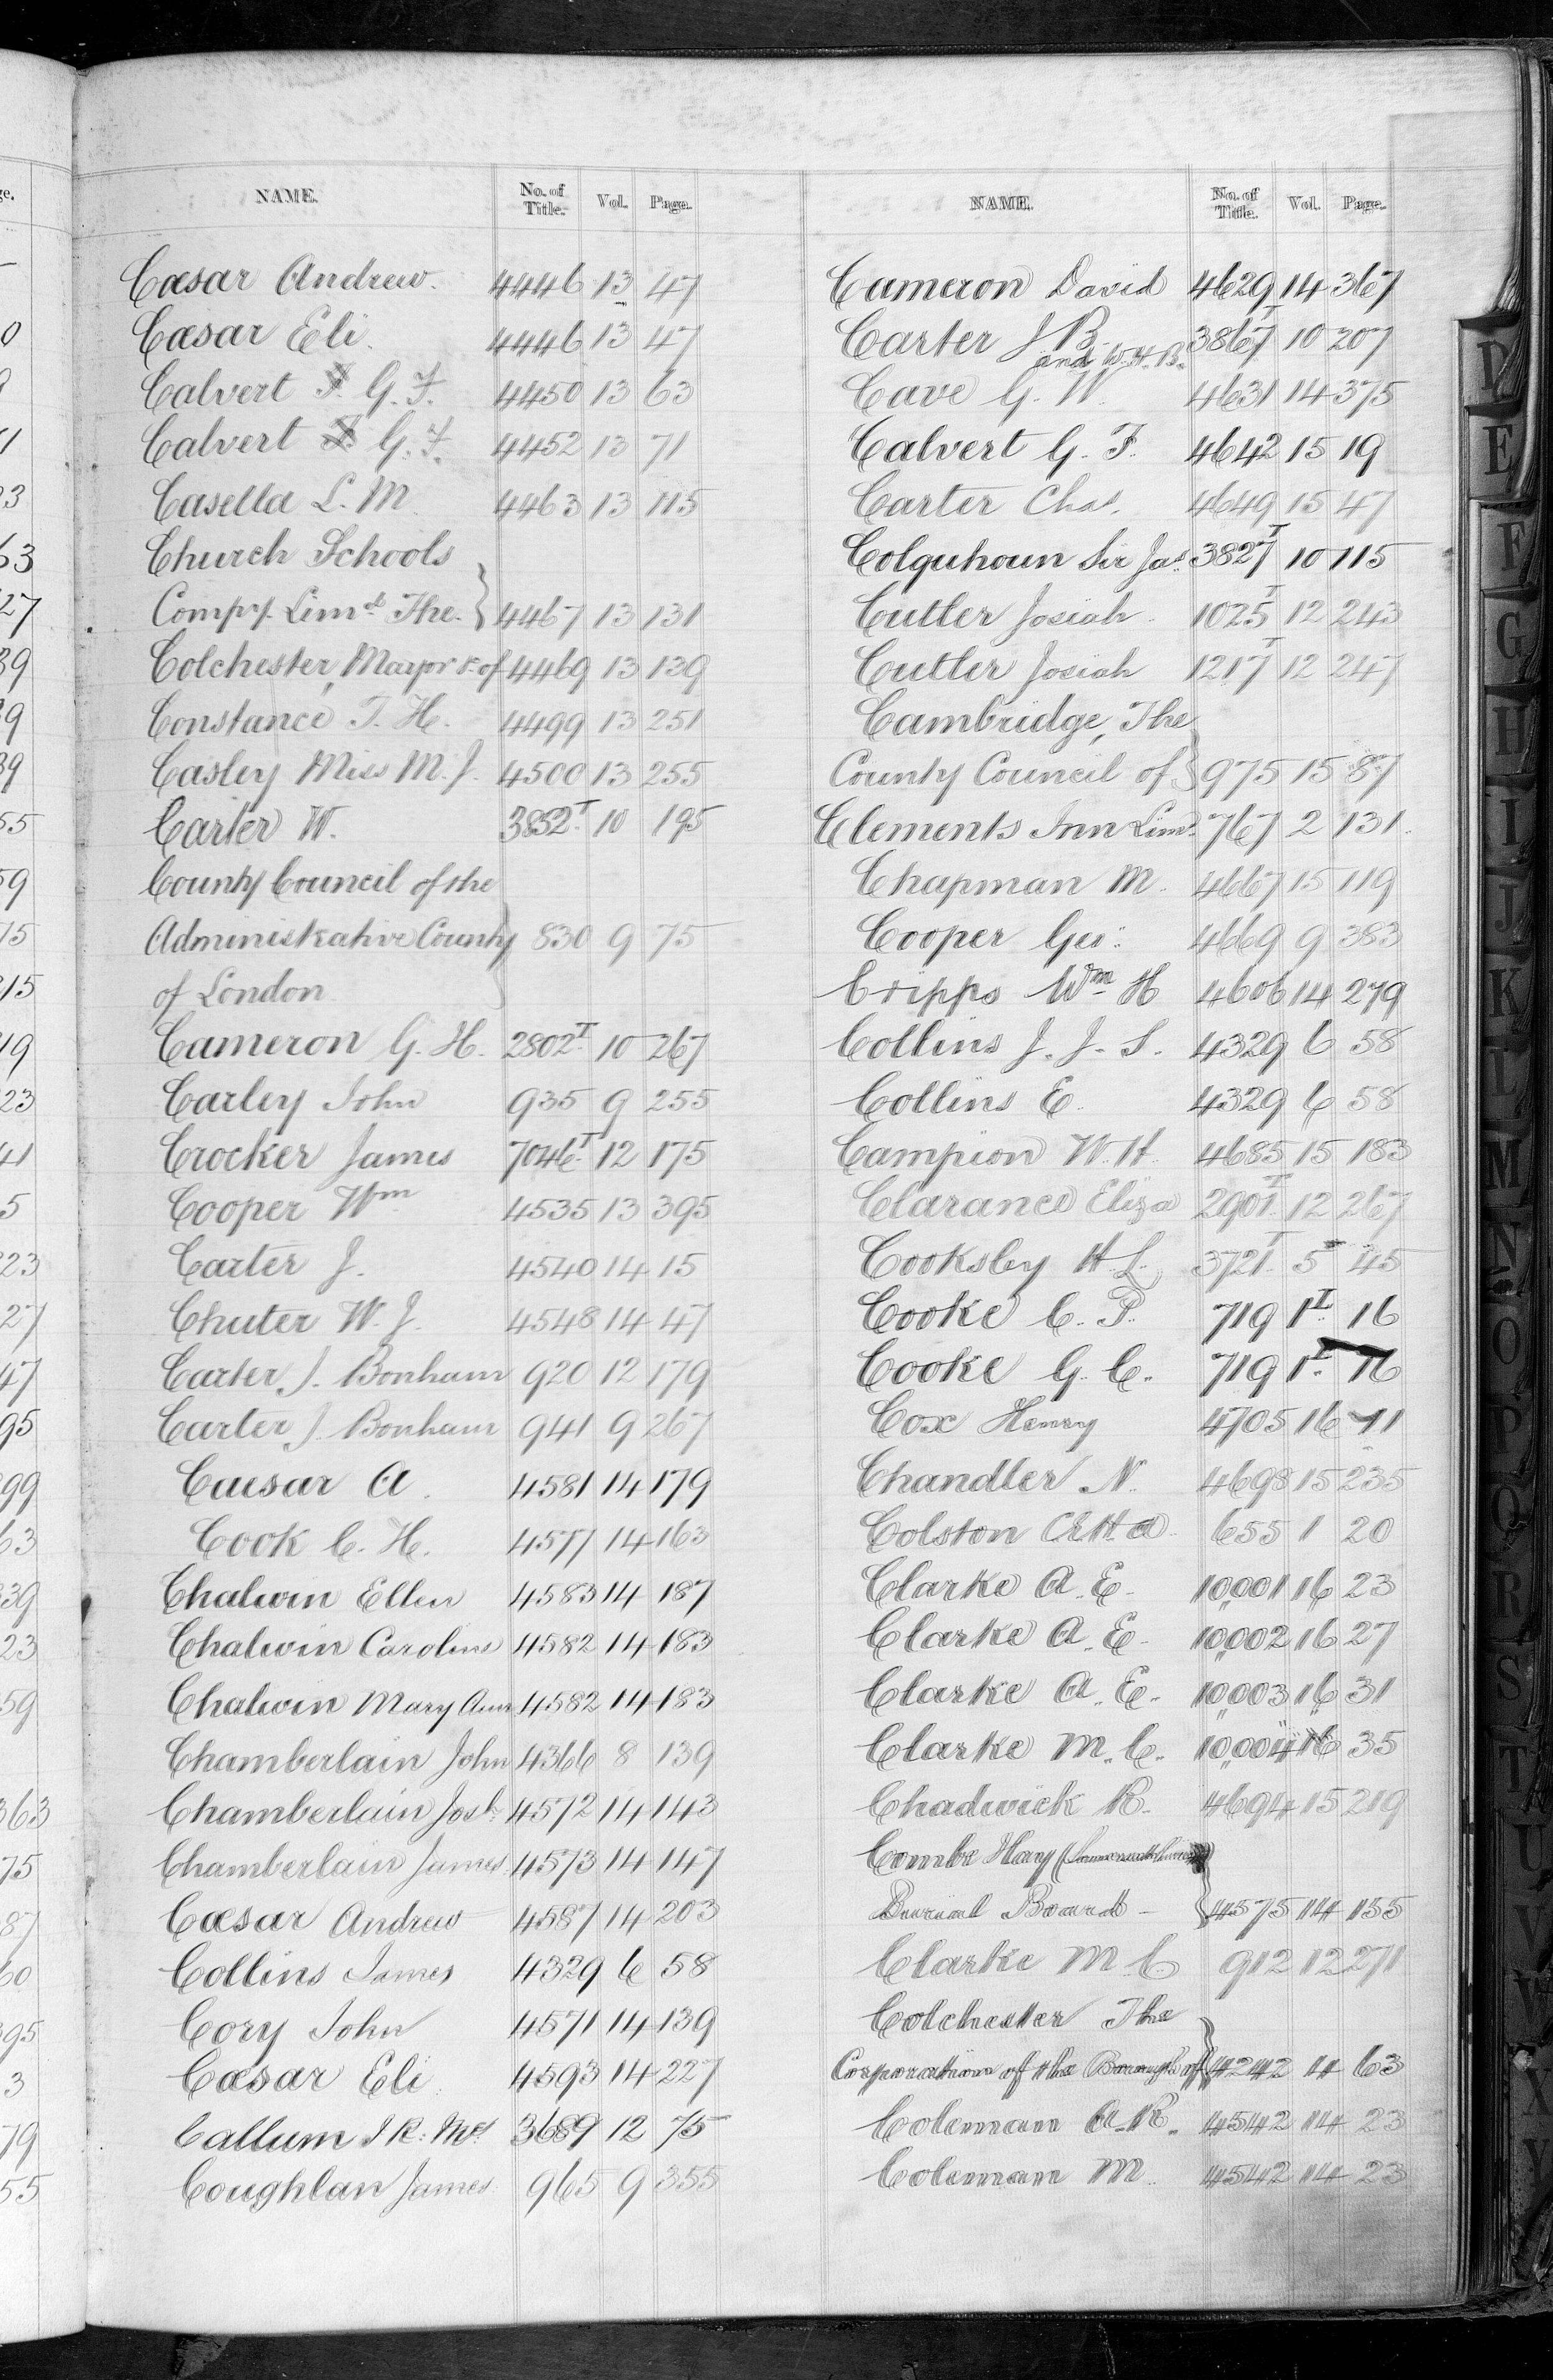 NAME. No. of Title. Vol. Page.
Cæsar Andrew. 4446 13 47
Cæsar Eli. 4446 13 47
Calvert G. F. 4450 13 63
Calvert G. F. 4452 13 71
Casella L. M. 4463 13 115
Church Schools
Compy. Limd. The. 4467 13 131
Colchester, Mayor &c of 4469 13 139
Constance T. H. 4499 13 251
Casley Miss M. J. 4500 13 255
Carter W. 3852T 10 195
County Council of the
Administrative County 830 9 75
of London
Cameron G. H. 2802T 10 267
Carley John 935 9 255
Crocker James 7046T 12 175
Cooper Wm 4535 13 395
Carter J. 4540 14 15
Chuter W. J. 4548 14 47
Carter J. Bonham 920 12 179
Carter J. Bonham 941 9 267
Caesar A. 4581 14 179
Cook C. H. 4577 14 163
Chalwin Ellen 4583 14 187
Chalwin Caroline 4582 14 183
Chalwin Mary Ann 4582 14 183
Chamberlain John 4366 8 139
Chamberlain Josh. 4572 14 143
Chamberlain James 4573 14 147
Cæsar Andrew 4587 14 203
Collins James 4329 6 58
Cory John 4571 14 139
Cæsar Eli 4593 14 227
Callum J R. Mc 3689 12 75
Coughlan James 965 9 355
NAME. No. of Title. Vol. Page.
Cameron David 4629 14 367
Carter J B. 3867T 10 207
and W. H. B.
Cave G. W. 4631 14 375
Calvert G. F. 4642 15 19
Carter Chas. 4649 15 47
Colquhoun Sir Jas. 3827T 10 115
Cutler Josiah 1025T 12 243
Cutler Josiah 1217T 12 247
Cambridge, The
County Council of 975 15 87
Clements Inn Limd. 767 2 131
Chapman M. 4667 15 119
Cooper Geo: 4669 9 383
Cripps Wm H 4606 14 279
Collins J. J. S. 4329 6 58
Collins E. 4329 6 58
Campion W. H. 4685 15 183
Clarance Eliza 2901T 12 267
Cooksley H. L. 3721T 5T 45
Cooke C. P. 719 1T 16
Cooke G. C. 719 1T 16
Cox Henry 4705 16 11
Chandler N. 4698 15 235
Colston C.E.H.A. 655 1 20
Clarke A. E. 10,001 16 23
Clarke A. E. 10,002 16 27
Clarke A. E. 10,003 16 31
Clarke M. C. 10,004 16 35
Chadwick R. 4694 15 219
Combe Hay
Burial Board 4575 14 155
Clarke M. C. 912 12 271
Colchester The
Corporation of the Borough of 4242 4 63
Colemam A. R. 4542 14 23
Colemam M. 4542 14 23
D
E
F
G
H
I
J
K
L
M
N
O
P
Q
R
S
T
U
V
W
X
Y